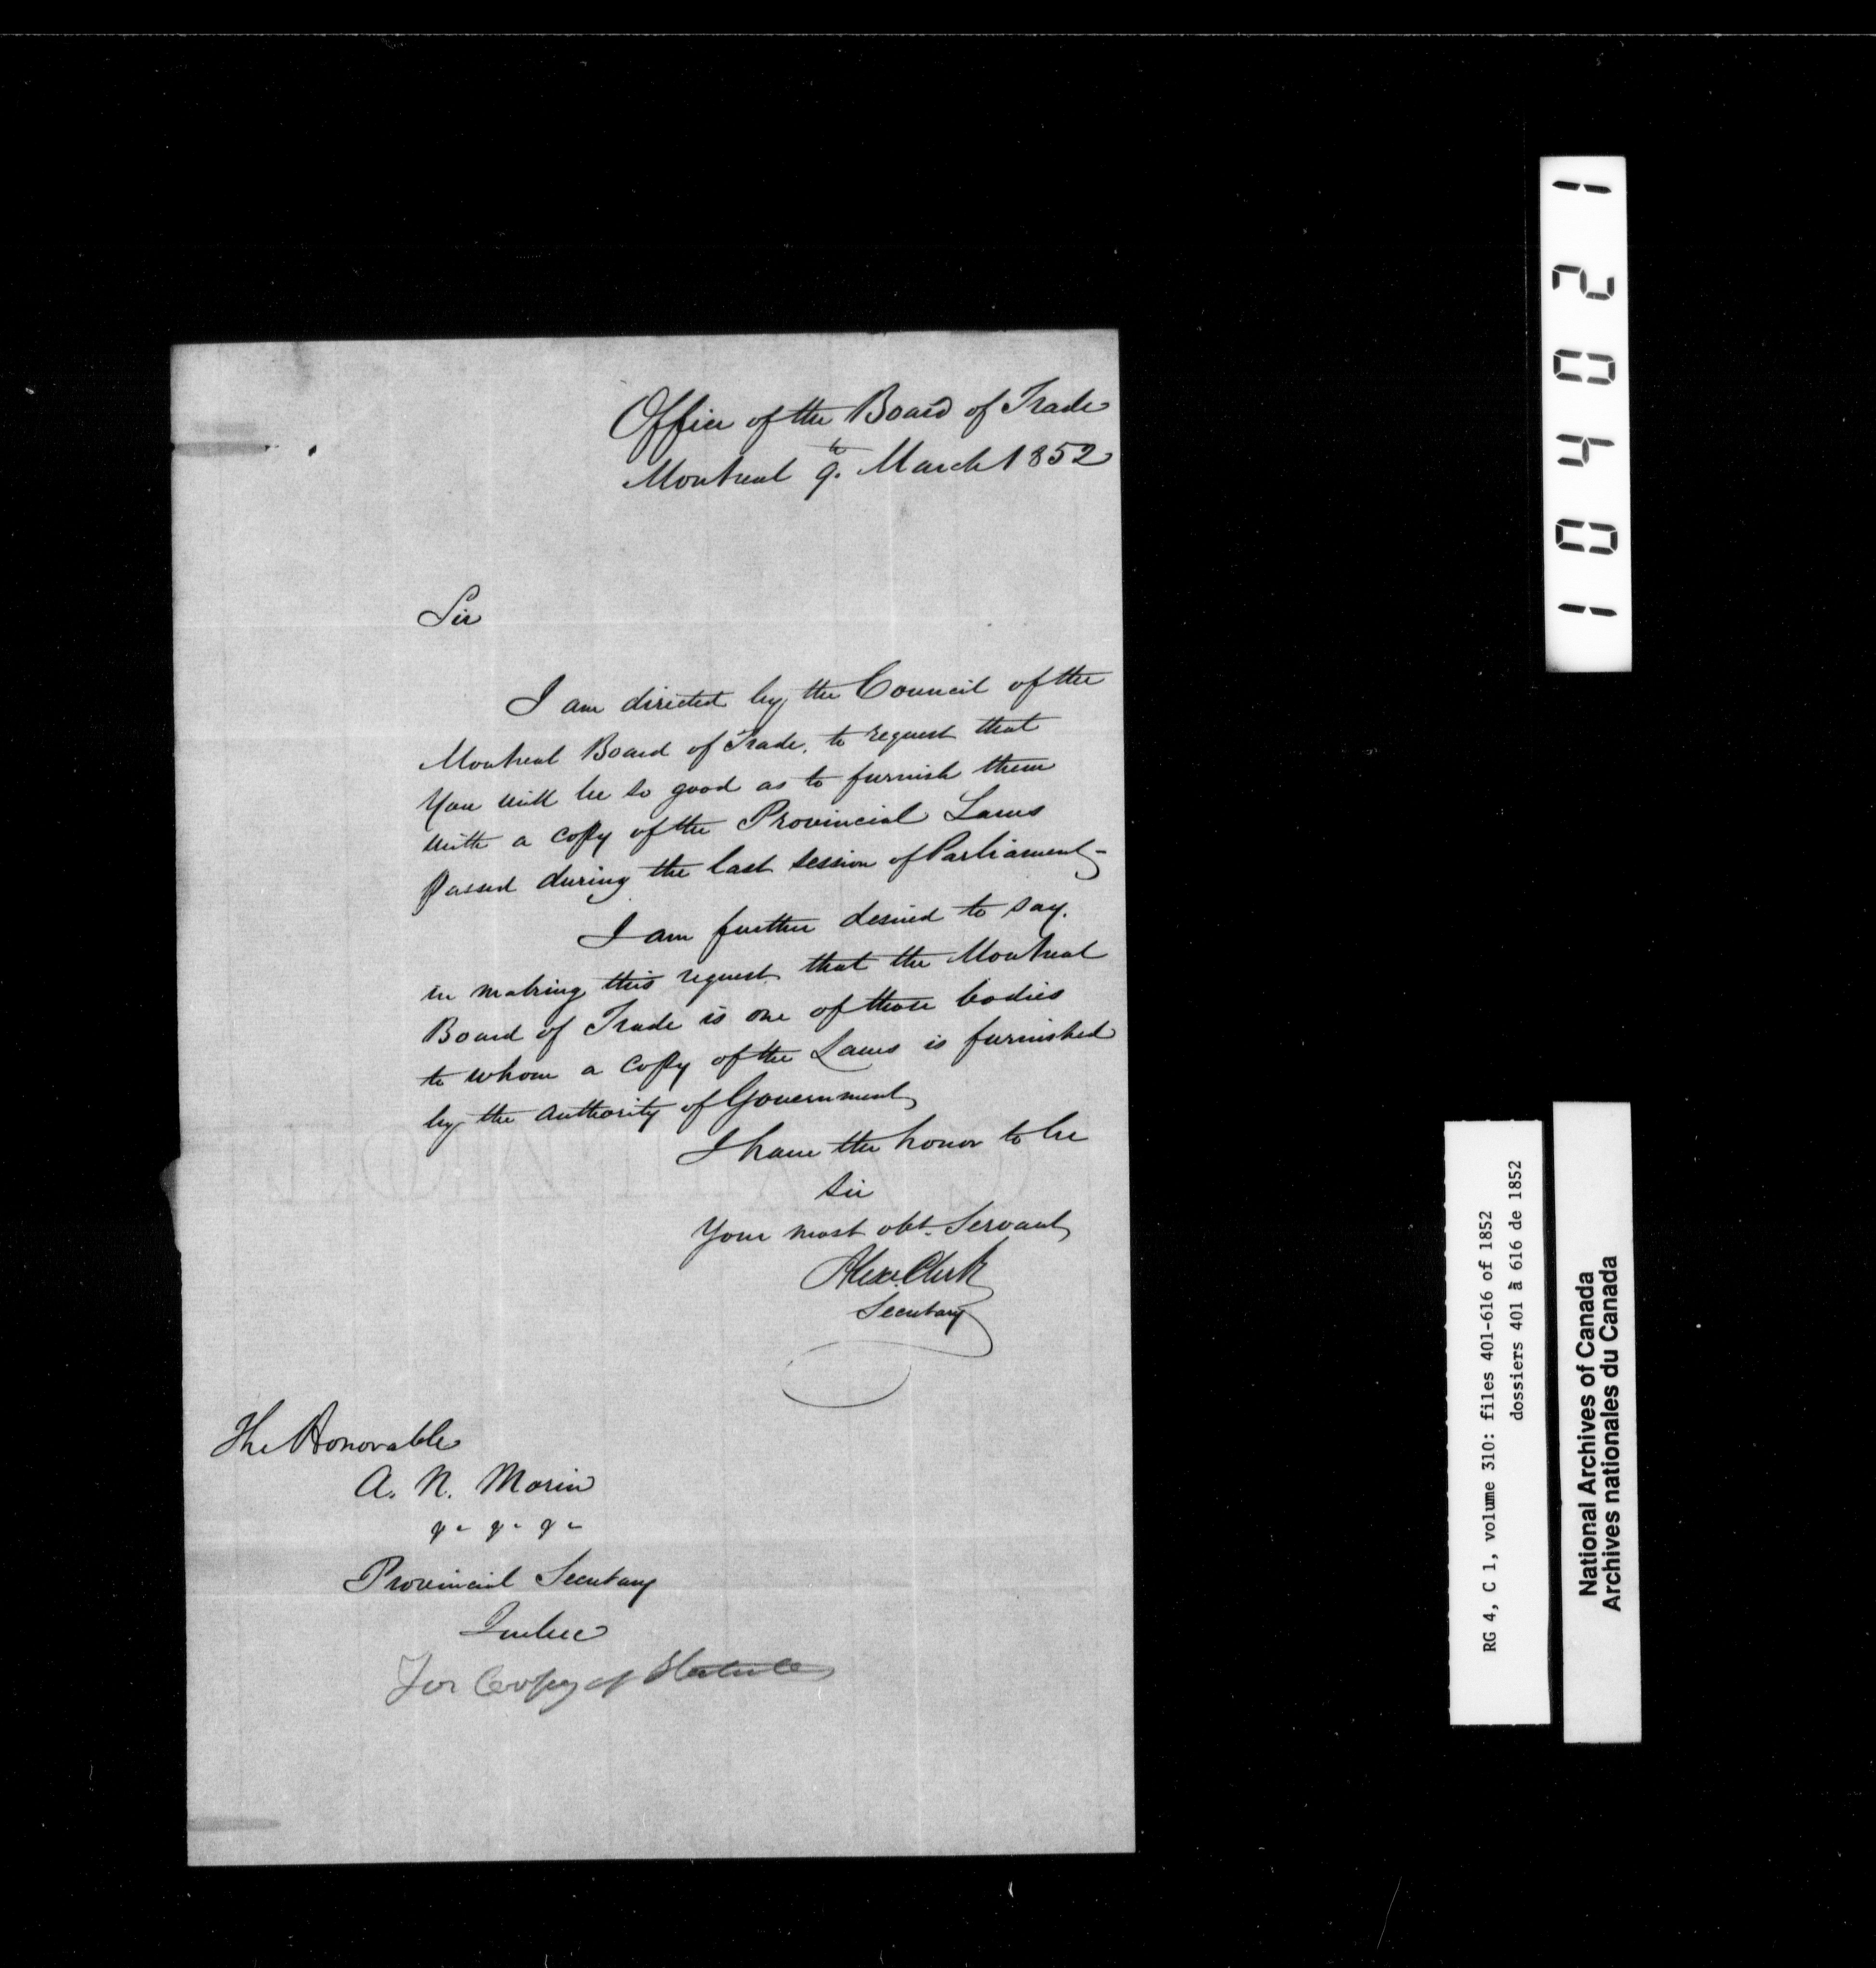 Office of the Board of Trade
Montreal 9th March 1852
Sir
I am directed by the Council of the
Montreal Board of Trade, to request that
You will be so good as to furnish them
with a copy of the Provincial Laws
passed during the last session of Parliament-
I am further desired to say,
in making this request, that the Montreal
Board of Trade is one of those bodies
to whom a copy of the Laws is furnished
by the authority of Government
I have the honor to be
Sir
Your most obt. Servant
Alexr. Clerk
Secretary
The Honorable
A. N. Morin
&c &c &c
Provincial Secretary
Quebec
For Copy of Statutes
10402 1
RG 4, C 1, volume 310: files 401-616 of 1852
dossiers 401 à 616 de 1852
National Archives of Canada
Archives nationales du Canada